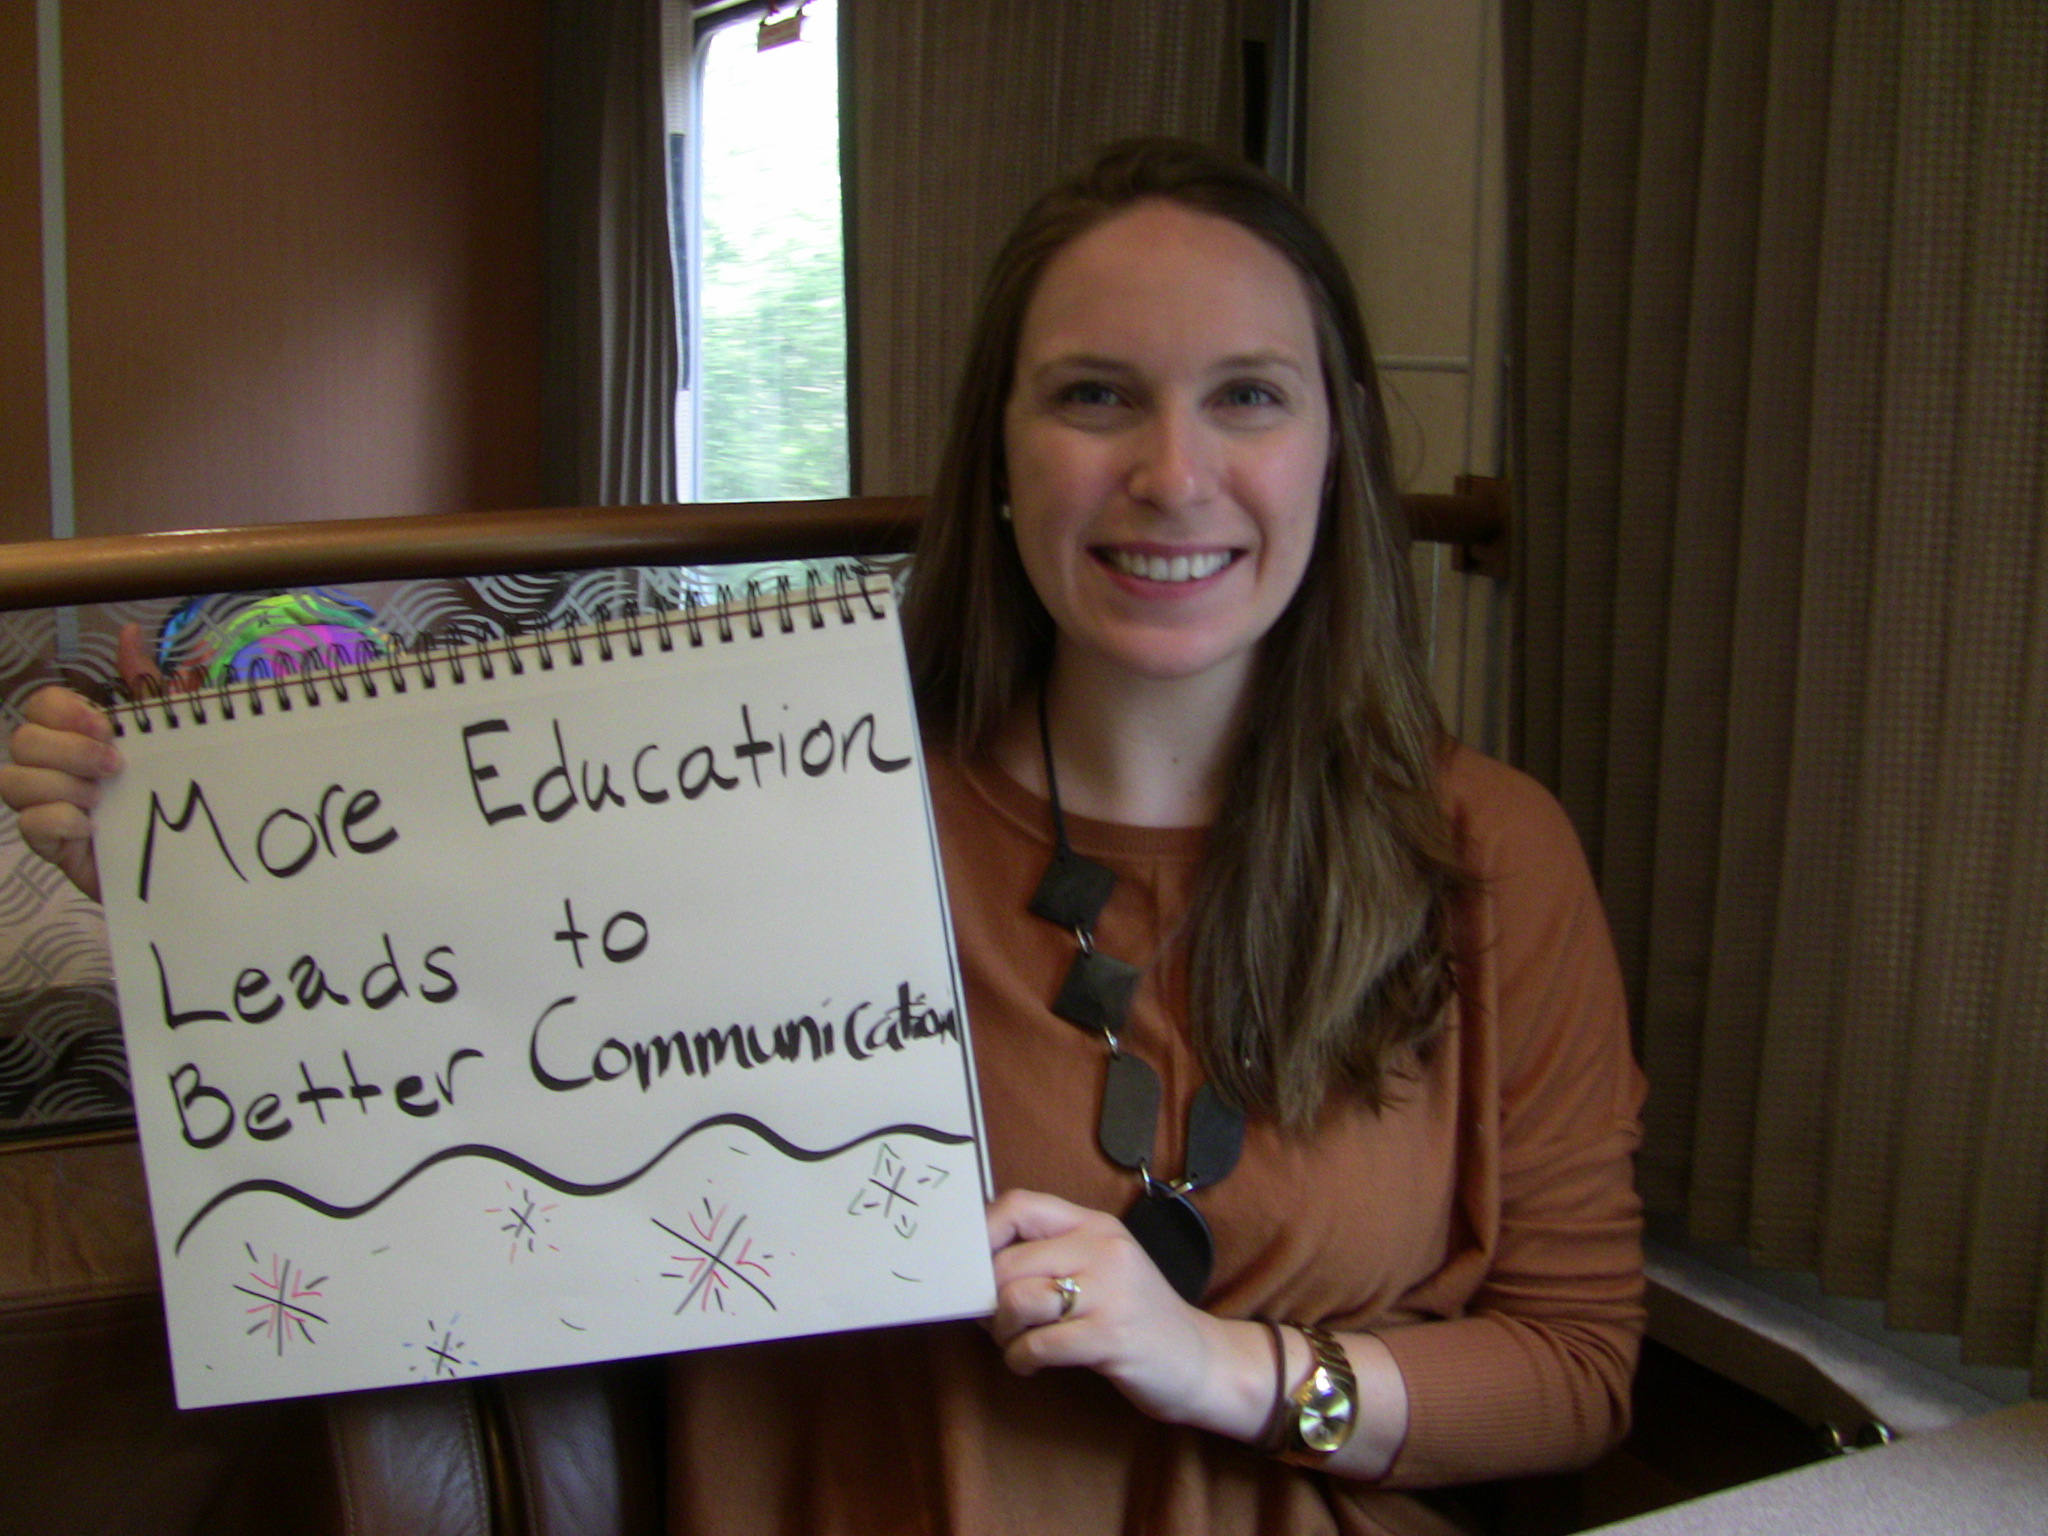 More Education
Leads to
Better Communication